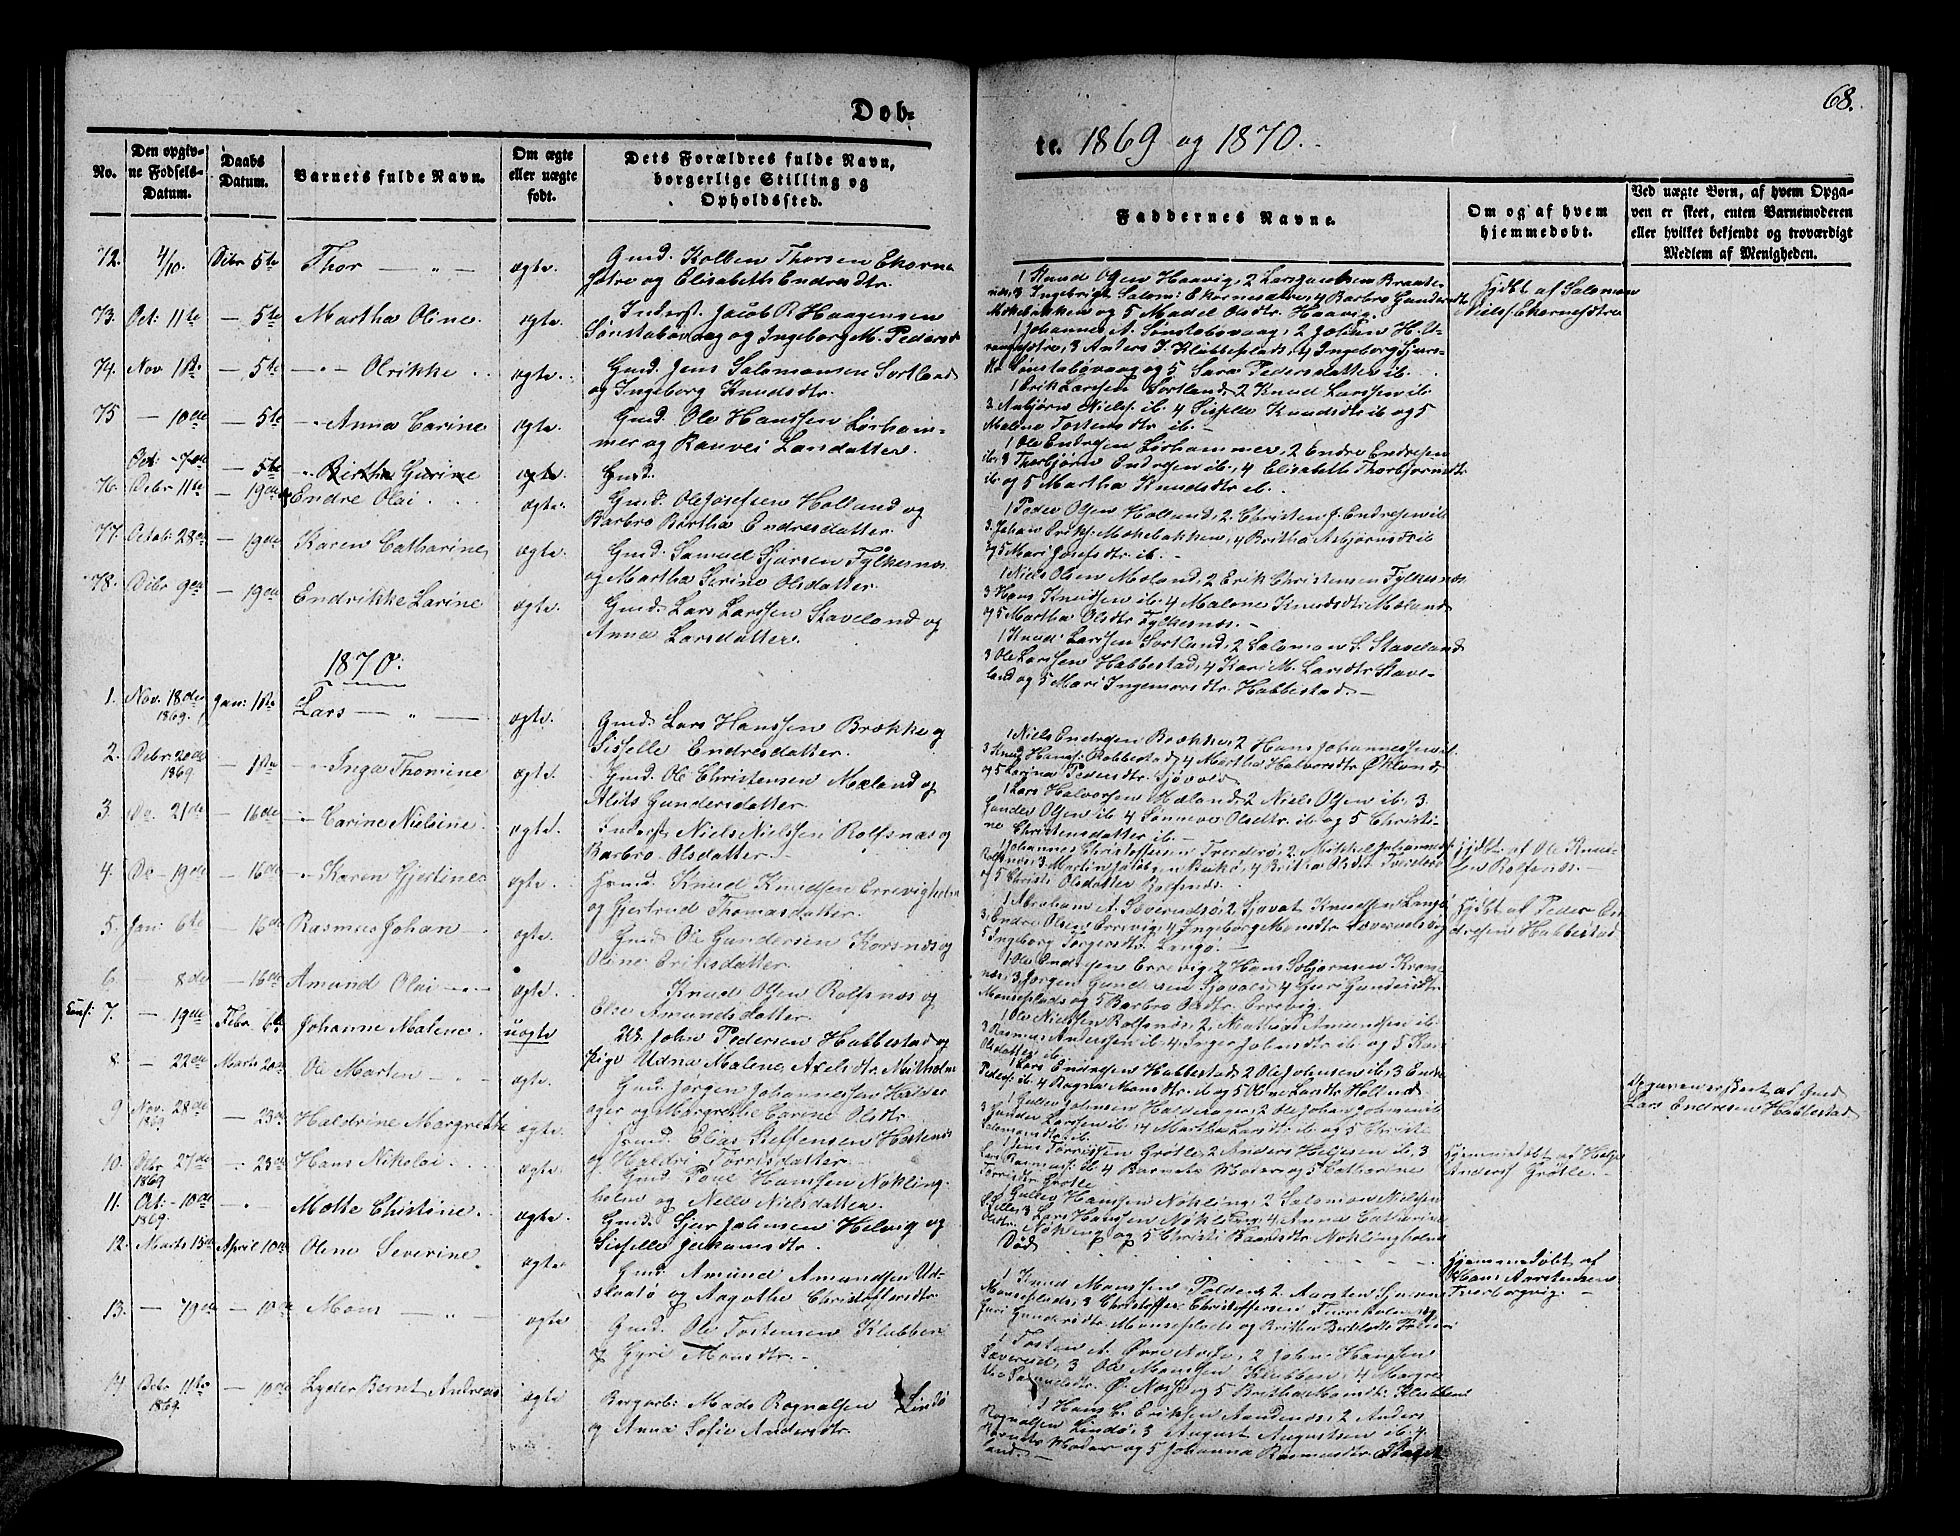 68.
Døb-
te. 1869 og 1870.
No.
Den opgiv-
ne Fødsels-
Datum.
Daabs
Datum.
Barnets fulde Navn.
Om ægte
eller uægte
født.
Dets Forældres fulde Navn,
borgerlige Stilling og
Opholdssted.
Faddernes Navne.
Om og af hvem
hjemmedøbt.
Ved uægte Børn, af hvem Opga-
ven er skeet, enten Barnemoderen
eller hvilket bekjendt og troværdigt
Medlem af Menigheden.
72. 4/10. Dibr 5te Thor — " — ægte. Gmd. Kolben Thorsen Ekorne-
sætre og Elisabeth Endresdtr.
1 Knud Olsen Haavig, 2 Lars
3 Ingebrigt Salom: Ekornesætre, 4 Barbro Gundersdtr
Møkebakken og 5 Madel Olsdtr. Haavig.
Hjdbt af Salomon
Niels. Ekornesætre
73. Oct: 11te — 5te Martha Oline. ægte. Inderst. Jacob R. Haagensen
Sønstabøvaag og Ingeborg M. Pedersd
1 Johannes A. Sønstabøvaag, 2 Johan H.
3 Anders J. Klubbeplads, 4 Ingeborg Sjurs-
dtr Sønstabøvaag og 5 Sara Pedersdatter ib.
74. Nov 1ste — 5te — " — Olrikke ægte. Gmd. Jens Salomonsen Sortland
og Ingeborg Knudsdtr.
1 Erik Larssen Sortland, 2 Knud Larssen ib.
3 Asbjørn Niels: ib. 4 Siselle Knudsdtr ib og 5
Malena Tostensdtr ib.
75 — 10de — 5te — " — Anna Carine ægte. Gmd. Ole Hanssen Lørham-
mer og Ranvei Larsdatter.
1 Ole Endresen Lørhammer, 2 Endre Endresen
ib. 3 Thorbjørn Endresen ib. 4 Elisabeth Thorbjørnsdtr
ib og 5 Martha Knudsdtr ib.
Oct: 7de — 5te — " — Birtha Gurine ægte Gmd.
76. Debr 11te — 19de Endre Olai. ægte. Gmd. Ole Josefsen Holland og
Barbro Bertha Endresdatter
1 Peder Olsen Holland, 2 Christen J. Endresen ib
3. Johan Eriks: Møkebakken, 4 Britha Asbjørnsdtr ib
og 5 Mari Josefsdtr. ib.
77. Octob: 28de — 19de Karen Catharine ægte. Gmd. Samuel Sjursen Fylkesnæs
og Martha Serine Olsdatter.
1 Niels Olsen Mæland, 2 Erik Christensen Fylkesnæs
3 Hans Knudsen ib. 4 Malene Knudsdtr Mæland
og 5 Martha Olsdtr Fylkesnæs.
78. Dibr 9de — 19de Endrikke Larine ægte. Gmd. Lars Larssen Staveland og
Anna Larsdatter.
1 Knud Larssen Sortland, 2 Salomon S. Staveland
3 Ole Larssen Habbestad, 4 Kari M. Larsdtr Stave-
land og 5 Mari Ingemarsdtr. Habbestad.
1870.
1. Nov. 18de
1869. Jan: 1ste Lars — " — ægte. Gmd. Lars Hanssen Brække og
Siselle Endresdatter.
1 Niels Endresen Brække, 2 Hans Johannessen ib
3 Knud Hanss: Robbestad, 4 Martha Halvorsdtr Økland
og 5 Larina Pedersdtr Sjøvold
2. Debr. 20de
1869. — 1ste — " — Inga Thomine ægte. Gmd. Ole Christensen Mæland og
Alits Gundersdatter.
1 Lars Halvorsen Mæland, 2 Niels Olsen ib. 3
Gunder Olsen ib. 4 Sønneva Olsdtr. ib og 5 Christi-
ne Christensdatter ib.
3. Do. 21de — 16de — " — Carine Nielsine. ægte. Inderst Niels Nielssen Rolfsnæs og
Barbro Olsdatter.
1 Johannes Christoffersen Tverderø, 2 Mikkel Johannes:
Rolfsnæs, 3 Martin Bukø, 4 Britha Olsdtr Tverderø
og 5 Christi Olsdatter Rolfsnæs.
Hjdbt af Ole Knud-
sen Rolfsnæs.
4. Do — 19de — 16de — " — Karen Gjertine ægte. Gmd. Knud Knudsen Errevigholm
og Gjertrud Thomasdatter.
1 Abraham A. Søverudsø, 2 Sjovat Knudsen Langø
3. Endre Olsen Errevig, 4 Ingeborg Monsdtr
5 Ingeborg Torgersdtr. Langø.
Hjdbt af Peder En-
dresen Habbestad
5. Jan: 6te — 16de Rasmus Johan — ægte. Gmd. Ole Gundersen Korsnæs og
Oline Eriksdatter.
1 Ole Endresen Errevig, 2 Hans Asbjørnsen Krom-
næs, 3 Jørgen Gundersen Sjøvold, 4 Guri Gundersdtr.
Monseplads og 5 Barbro Olsdtr. Errevig.
6. — 8de — 16de Amund Olai — ægte. Knud Olsen Rolfsnæs og
Else Amundsdatter.
1 Ole Nielssen Rolfsnæs, 2 Mathias Amundsen ib.
3 Rasmus Anderssen ib, 4 Inger Johnsdtr ib og 5 Kari
Olsdatter ib.
7. — 19de Febr. 6te Johanne Malene. uægte John Pedersen Habbestad og
Pige Udna Malene Axelsdtr Midtholm
1 Lars Endresen Habbestad, 2 Ole Johnsen ib, 3 Endre
Peders: ib. 4 Ragna Monsdtr. ib og 5 Oline Larsdtr Holland
Opgaven er skeet af Gmd
Lars Endresen Habbestad
8. — 22de Marts 20de Ole Marten — ægte. Gmd. Jørgen Johannessen Halder-
ager og Margrethe Carine Olsdtr.
1 Gullev Johnsen Halderager, 2 Ole Johan Johnsen ib
3 Gunder Larssen ib. 4 Martha Larsdtr. ib og 5 Christi
Salomonsdtr. ib.
9 Nov. 28de
1869 — 23de Haldrine Margrethe ægte. Gmd. Elias Steffensen Hestenæs
og Haldri Torrisdatter.
1 Jens Torrissen Grøtle, 2 Anders Helgesen ib. 3
Lars Rasmus: ib. 4 Barnets Moder og 5 Cathrine
Torrisdtr Grøtle
Hjemmedøbt af Helge
Anders: Grøtle.
10. Debr. 27de
1869 — 23de Hans Nikolai. ægte. Gmd. Poul Hanssen Nøkling-
holm og Nelle Nielsdatter.
1 Gullev Hanssen Nøkling, 2 Salomon Nielsen
3 Lars Hanssen Nøkling, 4 Anna Catharine
Olsdtr. Nøkling og 5 Christi Baardsdtr. Nøklingholm
11. Oct: 10de
1869. — " — Mette Christine. ægte. Gmd. Sjur Johnsen Helvig og
Siselle Johannesdtr.
Død
Hjemmedøbt af
Hans Aarstensen
Tverborgvig.
12. Marts 15de April 10de Olene Severine ægte. Gmd. Amund Amundsen Ud-
skotø og Aagothe Christoffersdtr.
1 Knud Monssen Polden, 2 Aarsten
Monseplads, 3 Christoffer Christoffersen
Guri Gundersdtr. Monseplads og Britha
13. — 19de — 10de Mons — " — ægte Gmd. Ole Tostensen Klubben
og Gyri Monsdtr.
1 Tosten A. Øvre 2 John Hanssen
Søverud, 3 Ole Monssen Klubben, 4 Margre-
tha Samuelsdtr. Ø. og 5 Britha Monsdtr. Klubben
14 Debr 11te
1869. — 10de Lyder Bernt Andreas ægte Bergarb: Mads Rognalsen Lindø
og Anna Sofie Andersdtr.
1 Hans C. Eriksen Sandenæs, 2 Anders
Rognalsen Lindø, 3 August Augustsen ib. 4
Barnets Moder og 5 Johanna Rasmusdtr.
land.